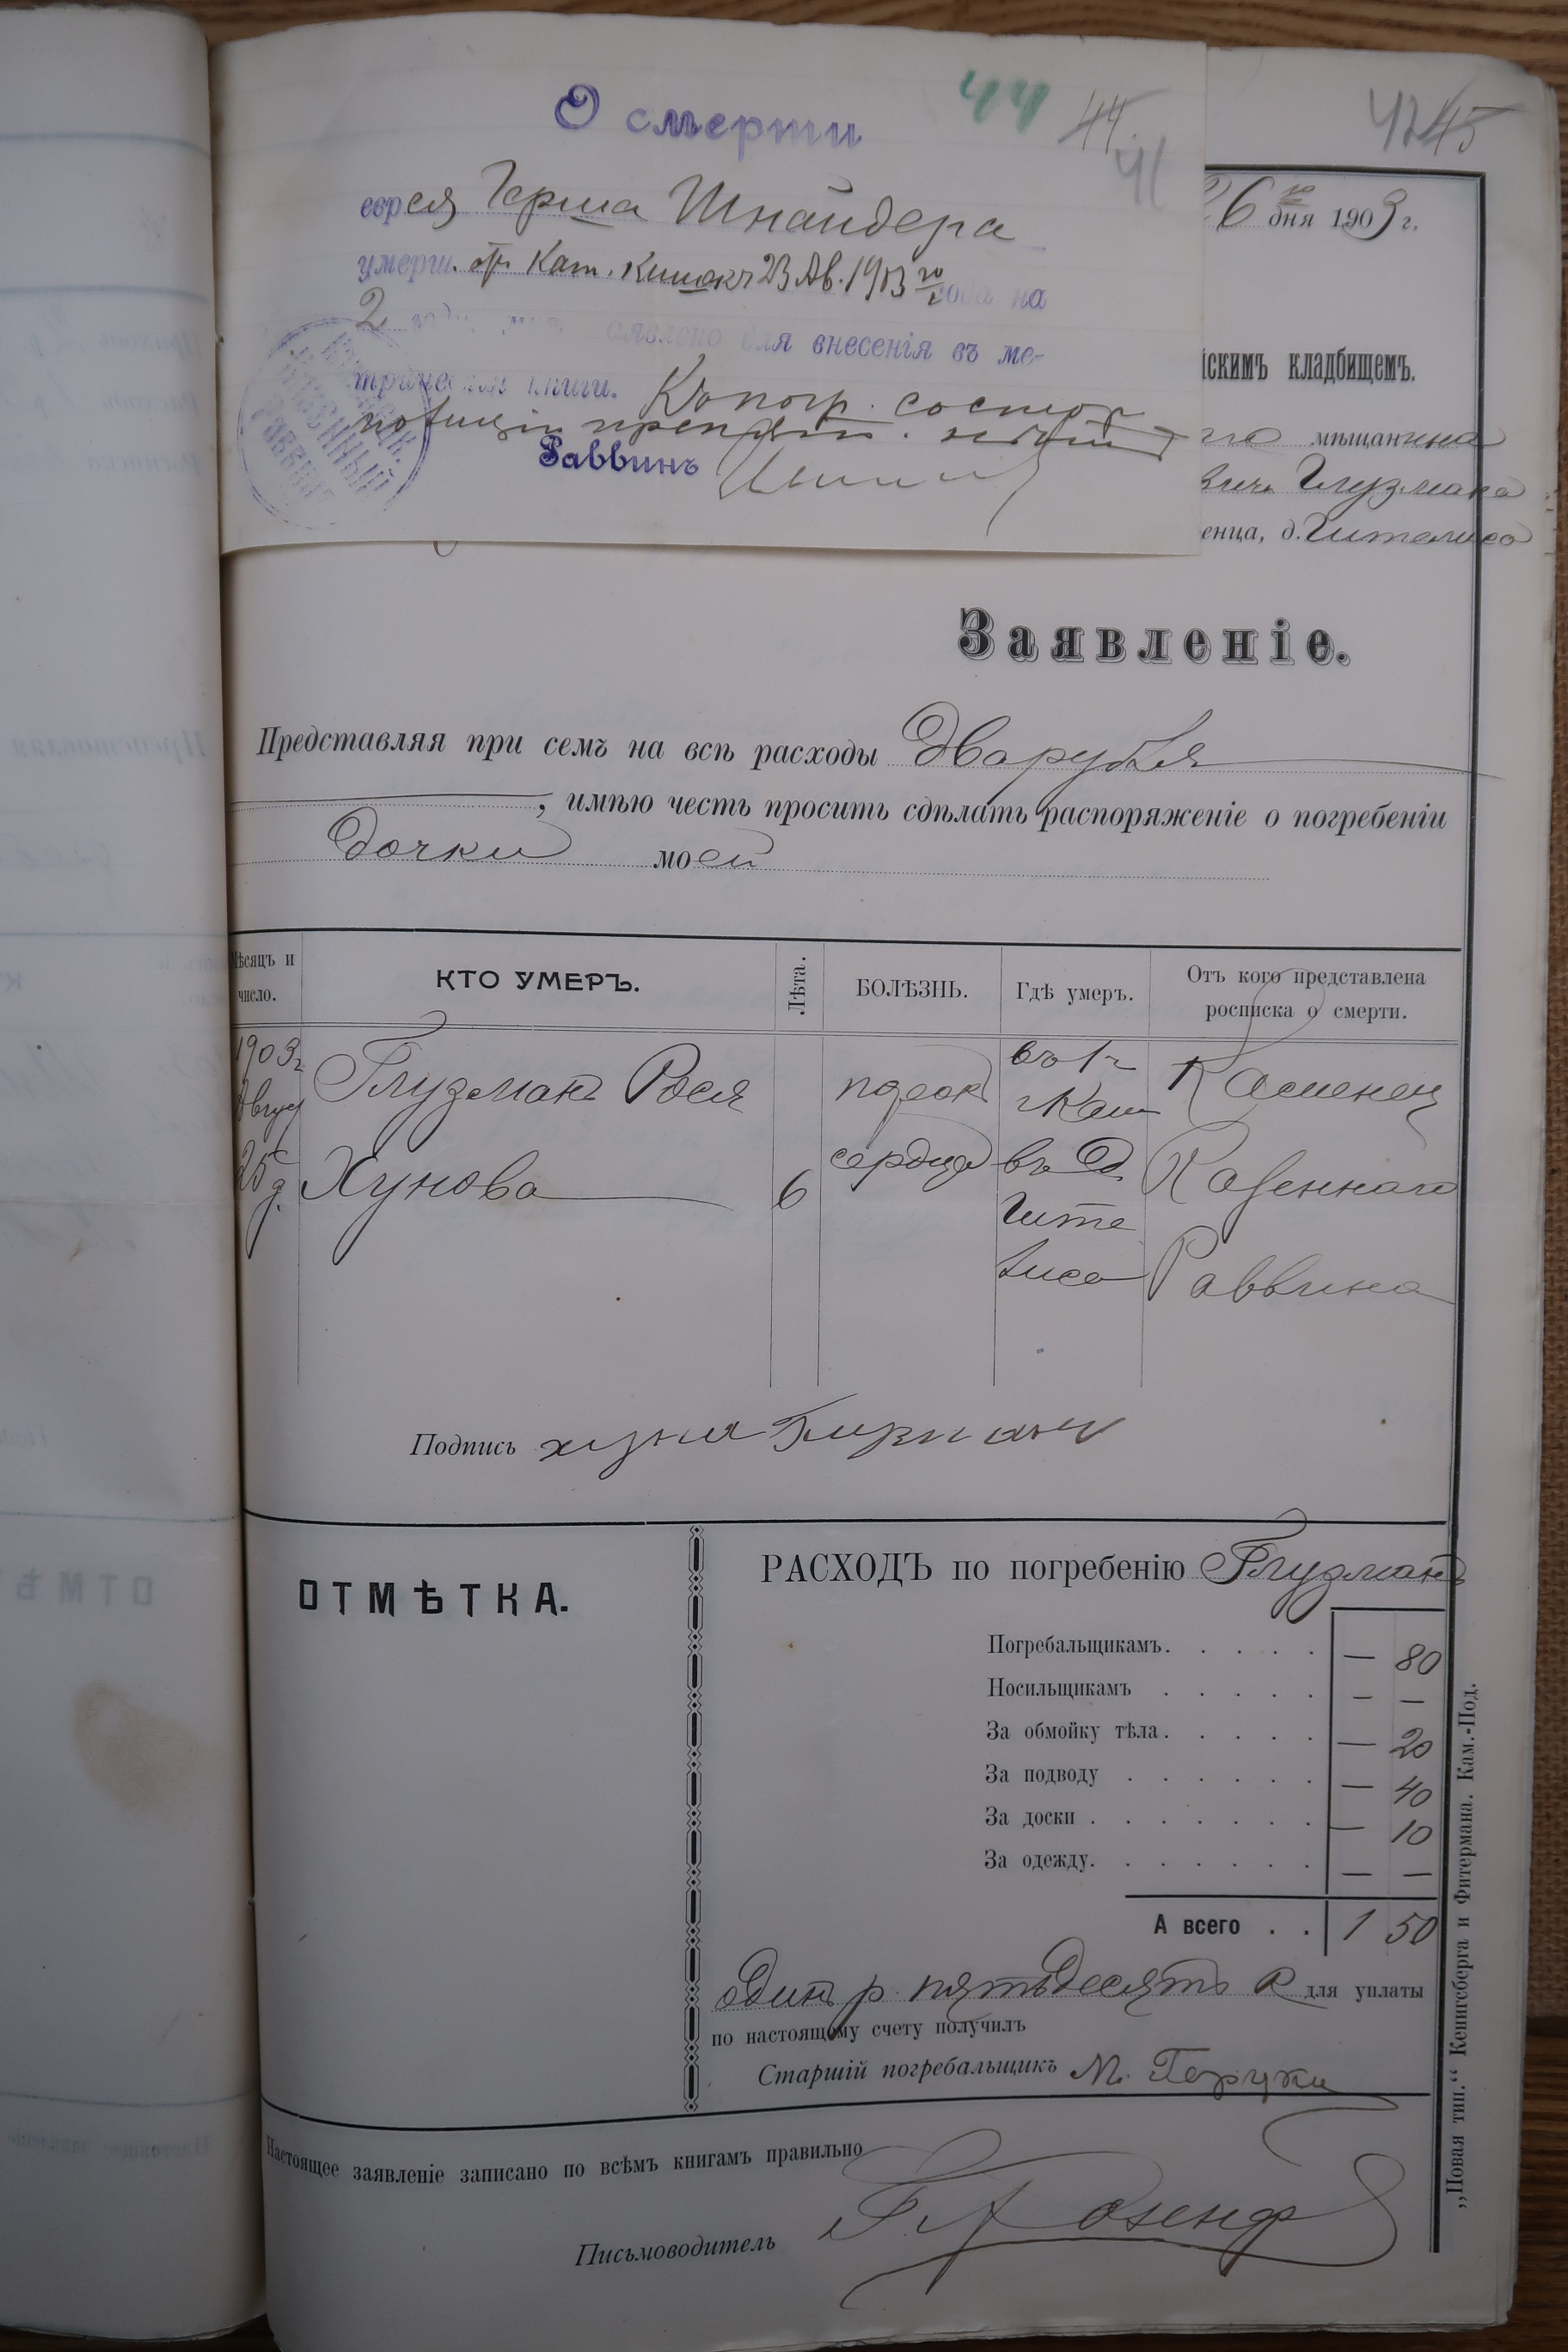 О смерти
44 44. 41
42 45
еврея Герша Шнайдера
умерш. от Кат. Кишокъ 23 Ав. 1903 го года на
2 заявлено для внесенія въ ме-
трическія книги. Къ погр. состор
полиціи препятст.
Раввинъ
26 го дня 1903 г.
йскимъ кладбищемъ.
го мѣщанина
вичъ Глузмана
енца, д. Гителиса
Заявленіе.
Представляя при семъ на всѣ расходы два рубля
, имѣю честь просить сдѣлать распоряженіе о погребеніи
дочки моей
Мѣсяцъ и число.
КТО УМЕРЪ.
Лѣта.
БОЛѢЗНЬ.
Гдѣ умеръ.
Отъ кого представлена росписка о смерти.
1903 г.
Август
25 д.
Глузманъ Рося
Хунова
6
порок
сердца
въ г.
Кам
въ д
Гите
лиса
Каменец
Казеннаго
Раввина
Подпись хуня Глузман
ОТМѢТКА.
РАСХОДЪ по погребенію Глузманъ
Погребальщикамъ. — 80
Носильщикамъ — —
За обмойку тѣла. — 20
За подводу — 40
За доски — 10
За одежду. — —
А всего 1 50
одинъ р. пятьдесятъ к для уплаты
по настоящему счету получилъ
Старшій погребальщикъ М.
Настоящее заявленіе записано по всѣмъ книгамъ правильно
Письмоводитель
„Новая тип.“ Кенигсберга и Фитермана. Кам.-Под.